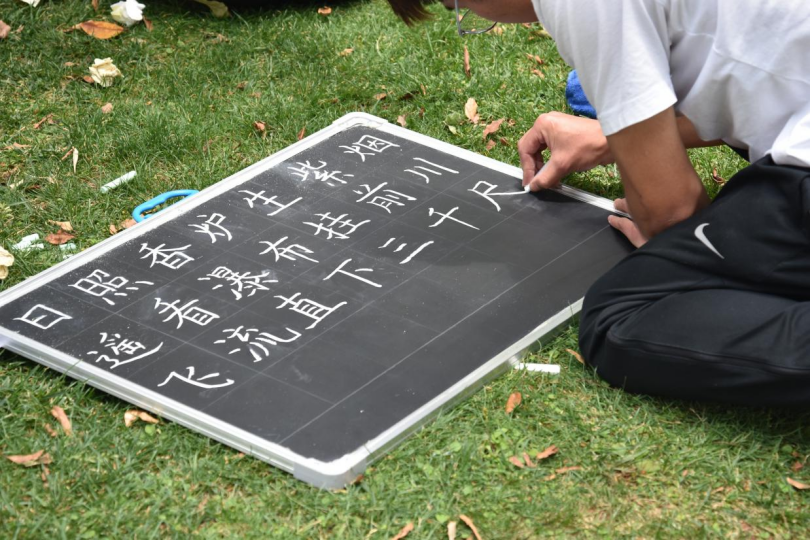 日照香炉生紫烟
遥看瀑布挂前川
飞流直下三千尺